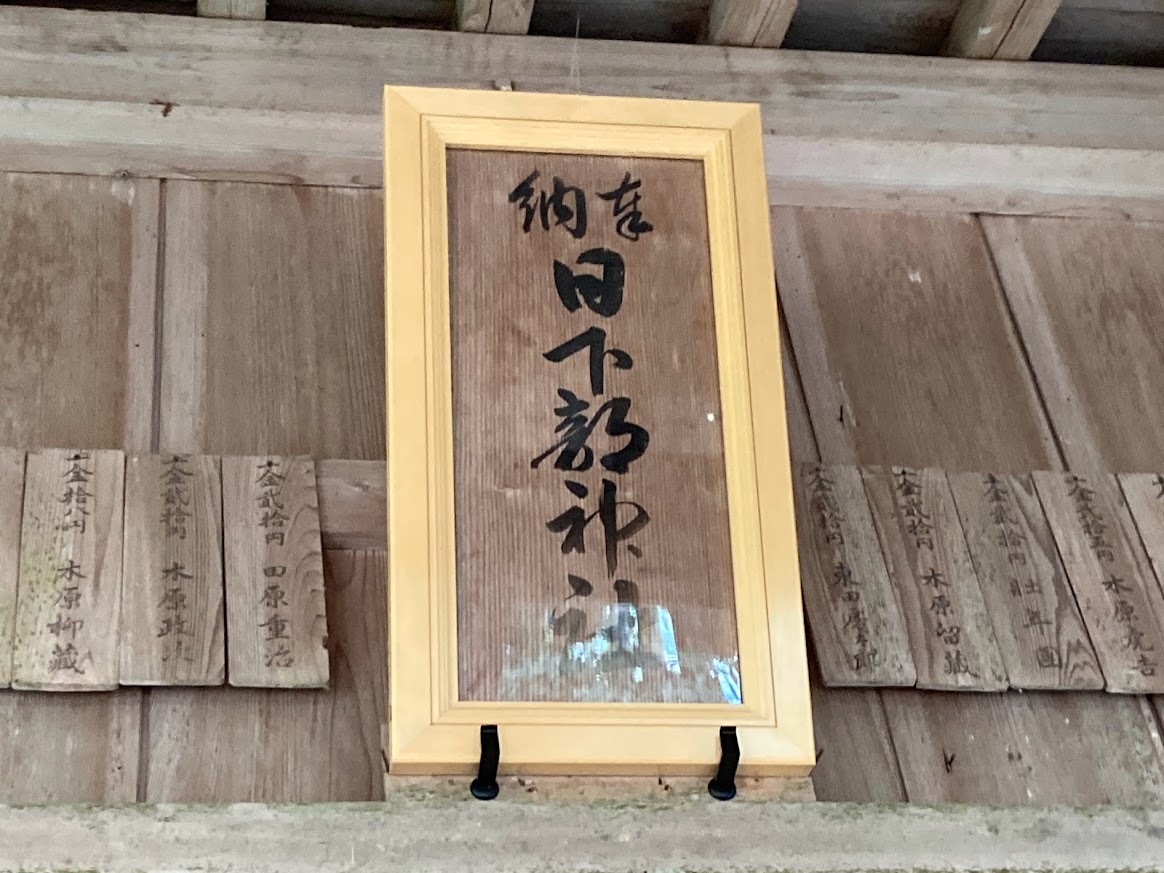 奉納
日下部神社
一金拾八円 木原柳蔵
一金弐拾円 木原政
一金弐拾円 田原重治
一金弐拾円
一金弐拾円 木原留蔵
一金弐拾円 壮年團
一金弐拾五円 木原